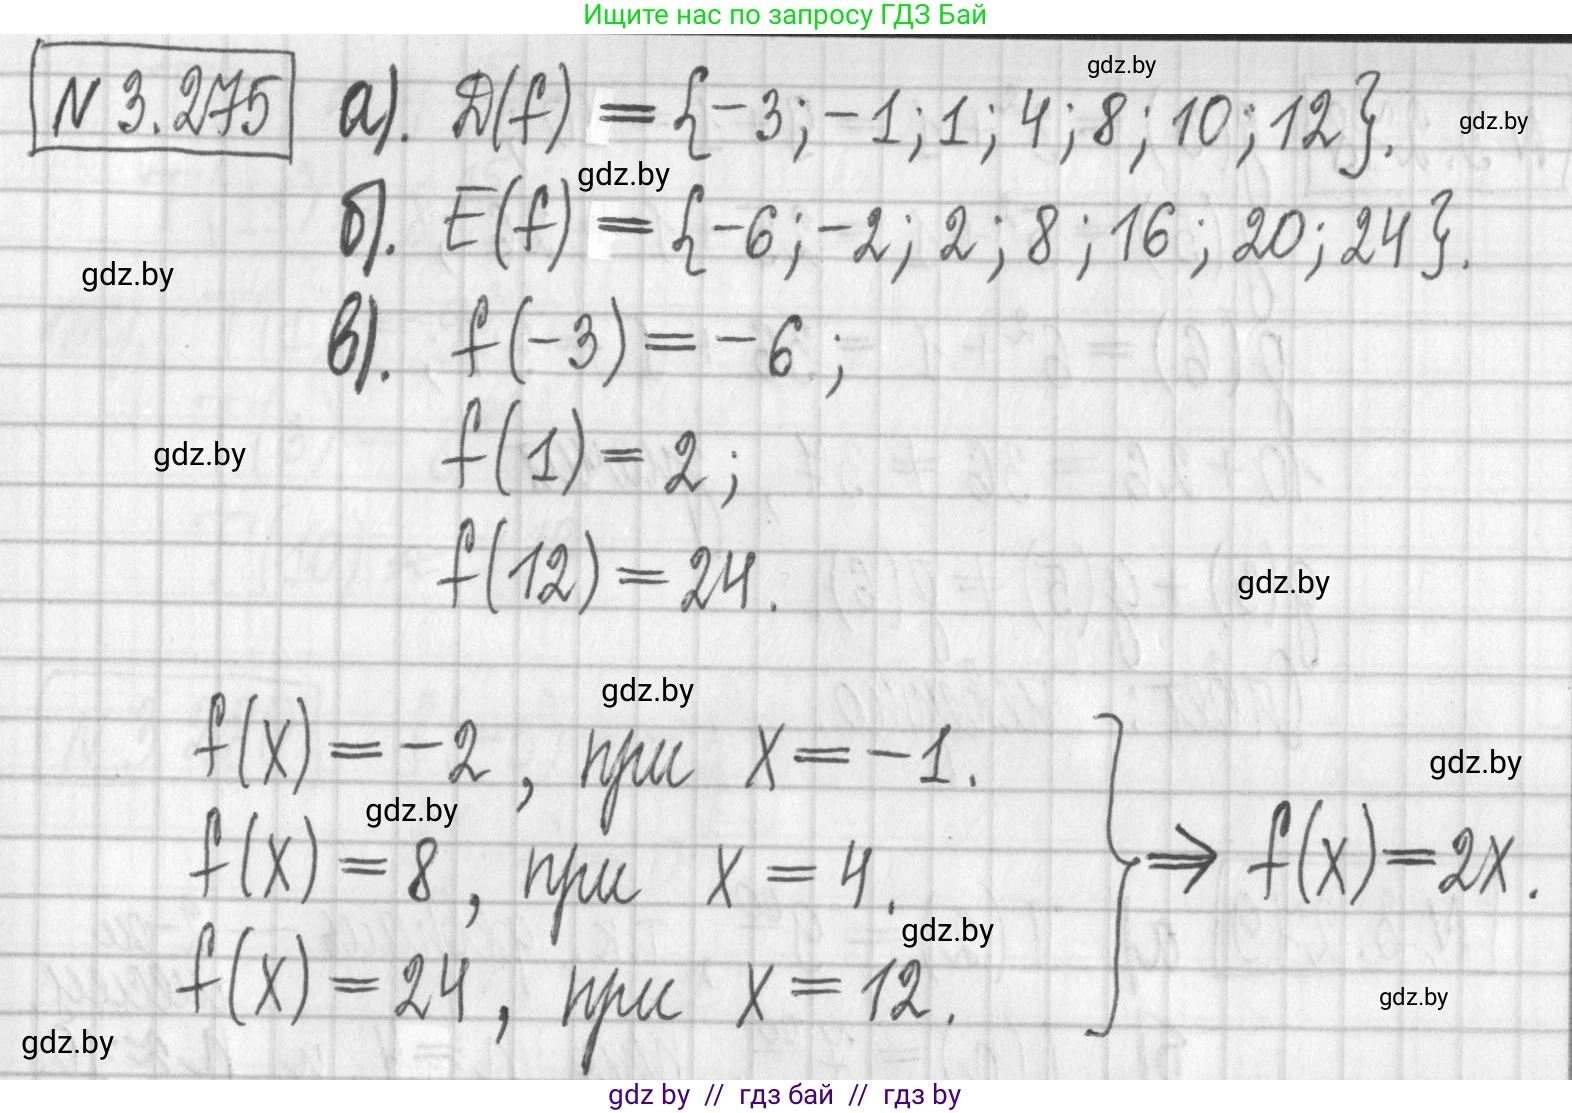 Ищите нас по запросу ГДЗ Бай
N 3.275 а). D(f) = {-3; -1; 1; 4; 8; 10; 12}.
gdz.by
gdz.by
gdz.by
б). E(f) = {-6; -2; 2; 8; 16; 20; 24}.
gdz.by
в). f(-3) = -6;
f(1) = 2;
gdz.by
f(12) = 24.
gdz.by
gdz.by
f(x) = -2, при x = -1.
gdz.by
gdz.by
f(x) = 8, при x = 4. } ⇒ f(x) = 2x.
gdz.by
f(x) = 24, при x = 12.
gdz.by
gdz.by
gdz by // гдз бай // гдз by